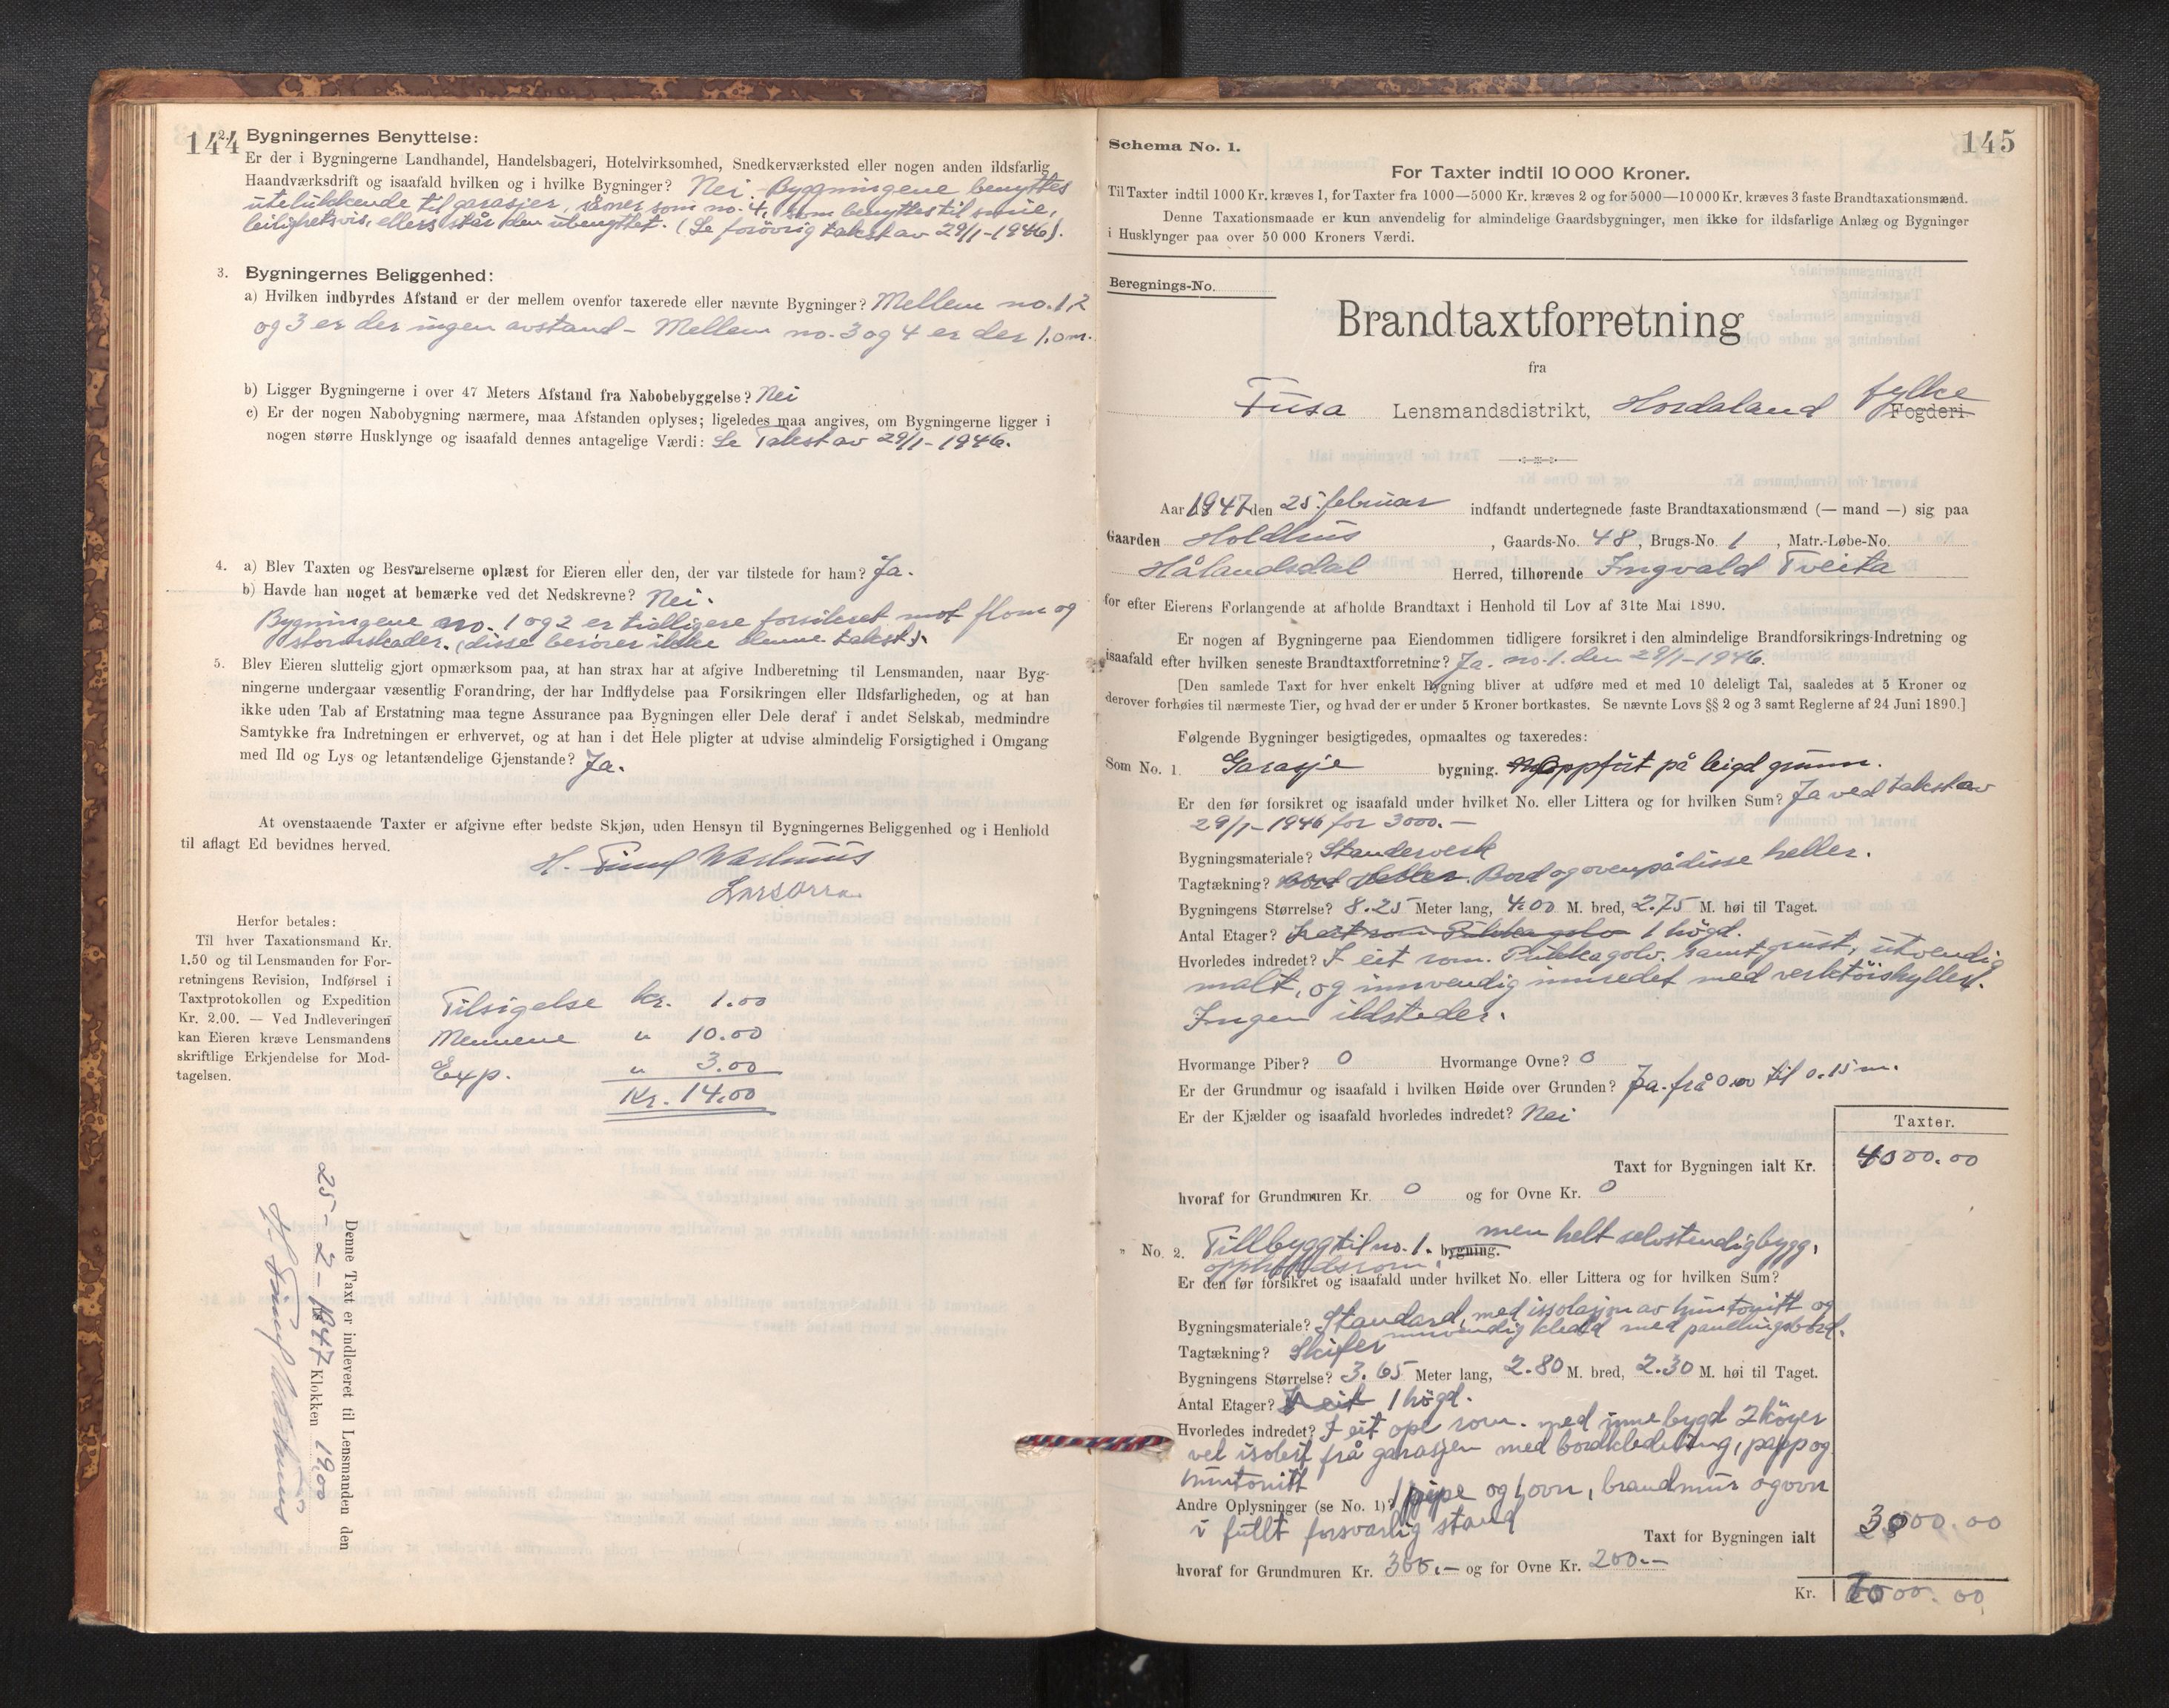 144
2. Bygningernes Benyttelse:
Er der i Bygningerne Landhandel, Handelsbageri, Hotelvirksomhed, Snedkerværksted eller nogen anden ildsfarlig
Haandværksdrift og isaafald hvilken og i hvilke Bygninger? Nei. Byggningene benyttes
utelukkende til garasjer, som no. 4, som benyttes til smie,
leilighetsvis, ellers står den ubenyttet. (Se forövrig takst av 29/1-1946).
3. Bygningernes Beliggenhed:
a) Hvilken indbyrdes Afstand er der mellem ovenfor taxerede eller nævnte Bygninger? Mellem no. 1, 2
og 3 er der ingen avstand - Mellem no. 3 og 4 er der 1.0 m.
b) Ligger Bygningerne i over 47 Meters Afstand fra Nabobebyggelse? Nei
c) Er der nogen Nabobygning nærmere, maa Afstanden oplyses; ligeledes maa angives, om Bygningerne ligger i
nogen større Husklynge og isaafald dennes antagelige Værdi: Se Takst av 29/1-1946.
4. a) Blev Taxten og Besvarelserne oplæst for Eieren eller den, der var tilstede for ham? Ja.
b) Havde han noget at bemærke ved det Nedskrevne? Nei.
Bygningene no. 1 og 2 er tidligere forsikret mot flom og
stormskader. (disse berörer ikke denne takst).
5. Blev Eieren sluttelig gjort opmærksom paa, at han strax har at afgive Indberetning til Lensmanden, naar Byg-
ningerne undergaar væsentlig Forandring, der har Indflydelse paa Forsikringen eller Ildsfarligheden, og at han
ikke uden Tab af Erstatning maa tegne Assurance paa Bygningen eller Dele deraf i andet Selskab, medmindre
Samtykke fra Indretningen er erhvervet, og at han i det Hele pligter at udvise almindelig Forsigtighed i Omgang
med Ild og Lys og letantændelige Gjenstande? Ja.
At ovenstaaende Taxter er afgivne efter bedste Skjøn, uden Hensyn til Bygningernes Beliggenhed og i Henhold
til aflagt Ed bevidnes herved.
H.
Lars
Herfor betales:
Til hver Taxationsmand Kr.
1.50 og til Lensmanden for For-
retningens Revision, Indførsel i
Taxtprotokollen og Expedition
Kr. 2.00. — Ved Indleveringen
kan Eieren kræve Lensmandens
skriftlige Erkjendelse for Mod-
tagelsen.
Tilsigelse kr. 1.00
Mennene " 10.00
Exp. " 3.00
Kr. 14.00
Denne Taxt er indleveret til Lensmanden den
25-2-1947 Klokken 19.00
Schema No. 1.
145
For Taxter indtil 10 000 Kroner.
Til Taxter indtil 1000 Kr. kræves 1, for Taxter fra 1000—5000 Kr. kræves 2 og for 5000—10 000 Kr. kræves 3 faste Brandtaxationsmænd.
Denne Taxationsmaade er kun anvendelig for almindelige Gaardsbygninger, men ikke for ildsfarlige Anlæg og Bygninger
i Husklynger paa over 50 000 Kroners Værdi.
Beregnings-No.
Brandtaxtforretning
fra
Fusa Lensmandsdistrikt, Hordaland fylke Fogderi.
Aar 1947 den 25. februar indfandt undertegnede faste Brandtaxationsmænd (— mand —) sig paa
Gaarden Holdhus, Gaards-No. 48, Brugs-No. 1, Matr.-Løbe-No.
Hålandsdal Herred, tilhørende Ingvald Tveita
for efter Eierens Forlangende at afholde Brandtaxt i Henhold til Lov af 31te Mai 1890.
Er nogen af Bygningerne paa Eiendommen tidligere forsikret i den almindelige Brandforsikrings-Indretning og
isaafald efter hvilken seneste Brandtaxtforretning? Ja. no. 1. den 29/1-1946.
[Den samlede Taxt for hver enkelt Bygning bliver at udføre med et med 10 deleligt Tal, saaledes at 5 Kroner og
derover forhøies til nærmeste Tier, og hvad der er under 5 Kroner bortkastes. Se nævnte Lovs §§ 2 og 3 samt Reglerne af 24 Juni 1890.]
Følgende Bygninger besigtigedes, opmaaltes og taxeredes:
Som No. 1 Garasje bygning. oppfört på leigd grunn.
Er den før forsikret og isaafald under hvilket No. eller Littera og for hvilken Sum? Ja ved takst av
29/1-1946 for 3000.-
Bygningsmateriale? Standerverk
Tagtækning? Bord og ovenpå disse heller.
Bygningens Størrelse? 8.25 Meter lang, 4.00 M. bred, 2.75 M. høi til Taget.
Antal Etager? 1 högd.
Hvorledes indredet? I eit rom. Pukkagolv. samt grust, utvendig
malt, og innvendig innredet med verktöishyller.
Ingen ildsteder.
Hvormange Piber? 0 Hvormange Ovne? 0
Er der Grundmur og isaafald i hvilken Høide over Grunden? Ja. frå 0.00 til 0.15 m.
Er der Kjælder og isaafald hvorledes indredet? Nei
Taxter.
Taxt for Bygningen ialt Kr. 4000.00
hvoraf for Grundmuren Kr. 0 og for Ovne Kr. 0
" No. 2. Tillbygg til no. 1. bygning. men helt selvstendig bygg,
oppholdsrom.
Er den før forsikret og isaafald under hvilket No. eller Littera og for hvilken Sum?
Bygningsmateriale? Standard, med issolasjon av huntonitt og
innvendig kledd med panelingsbord.
Tagtækning? Skifer
Bygningens Størrelse? 3.65 Meter lang, 2.80 M. bred, 2.30 M. høi til Taget.
Antal Etager? I eit 1 högd.
Hvorledes indredet? I eit rom. med innebygd 2 köyer
vel isolert frå garasjen med bordkledning, papp og
huntonitt
Andre Oplysninger (se No. 1)? 1 pipe og 1 ovn, brandmur og ovn
i fullt forsvarlig stand
Taxt for Bygningen ialt 3000.00
hvoraf for Grundmuren Kr. 300.- og for Ovne Kr. 200.-
Kr. 7000.00